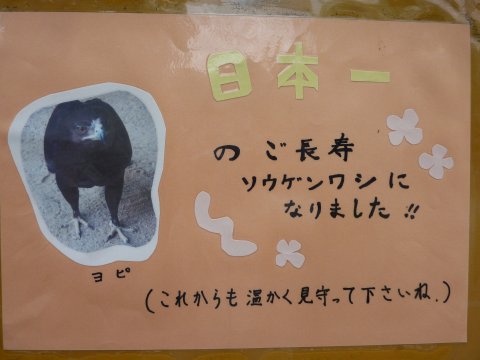 日本一
の ご長寿
ソウゲンワシに
なりました!!
ヨピ
(これからも温かく見守って下さいね.)